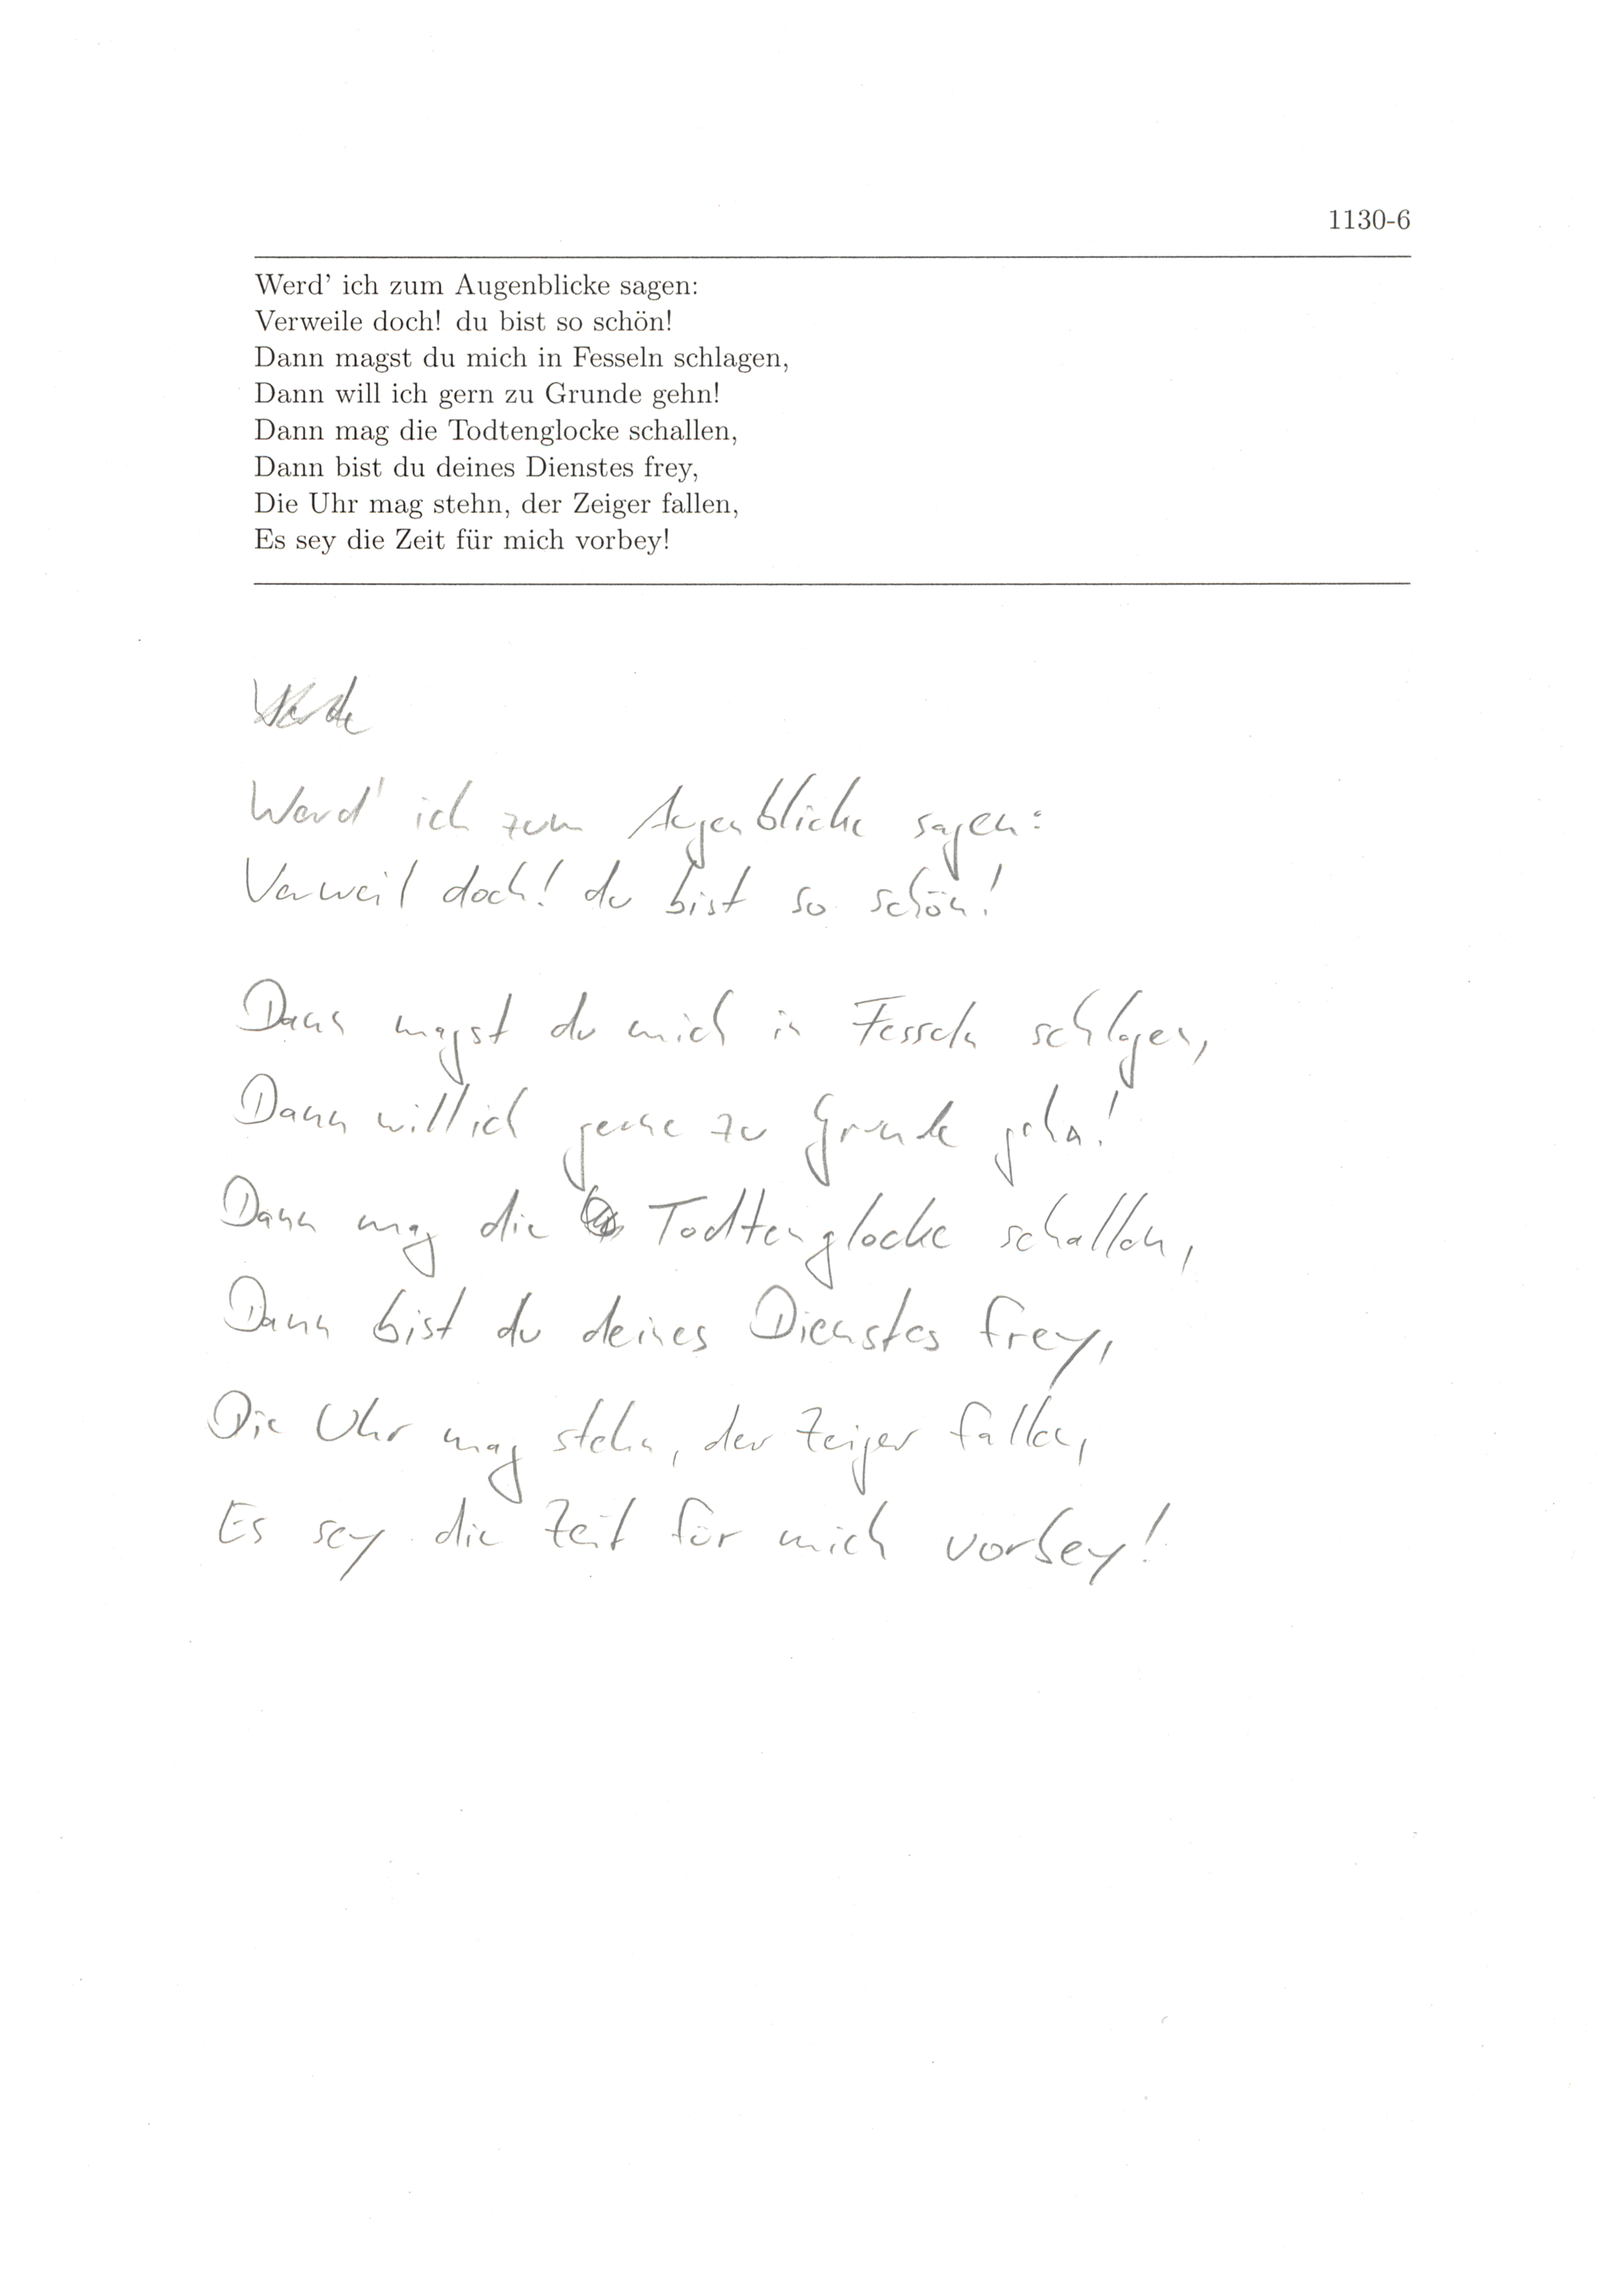 1130-6
Werd' ich zum Augenblicke sagen:
Verweile doch! du bist so schön!
Dann magst du mich in Fesseln schlagen,
Dann will ich gern zu Grunde gehn!
Dann mag die Todtenglocke schallen,
Dann bist du deines Dienstes frey,
Die Uhr mag stehn, der Zeiger fallen,
Es sey die Zeit für mich vorbey!
Werd' ich zum Augenblicke sagen:
Verweil doch! du bist so schön!
Dann magst du mich in Fesseln schlagen,
Dann will ich gerne zu Grunde gehn!
Dann mag die Todtenglocke schallen,
Dann bist du deines Dienstes frey,
Die Uhr mag stehn, der Zeiger fallen,
Es sey die Zeit für mich vorbey!